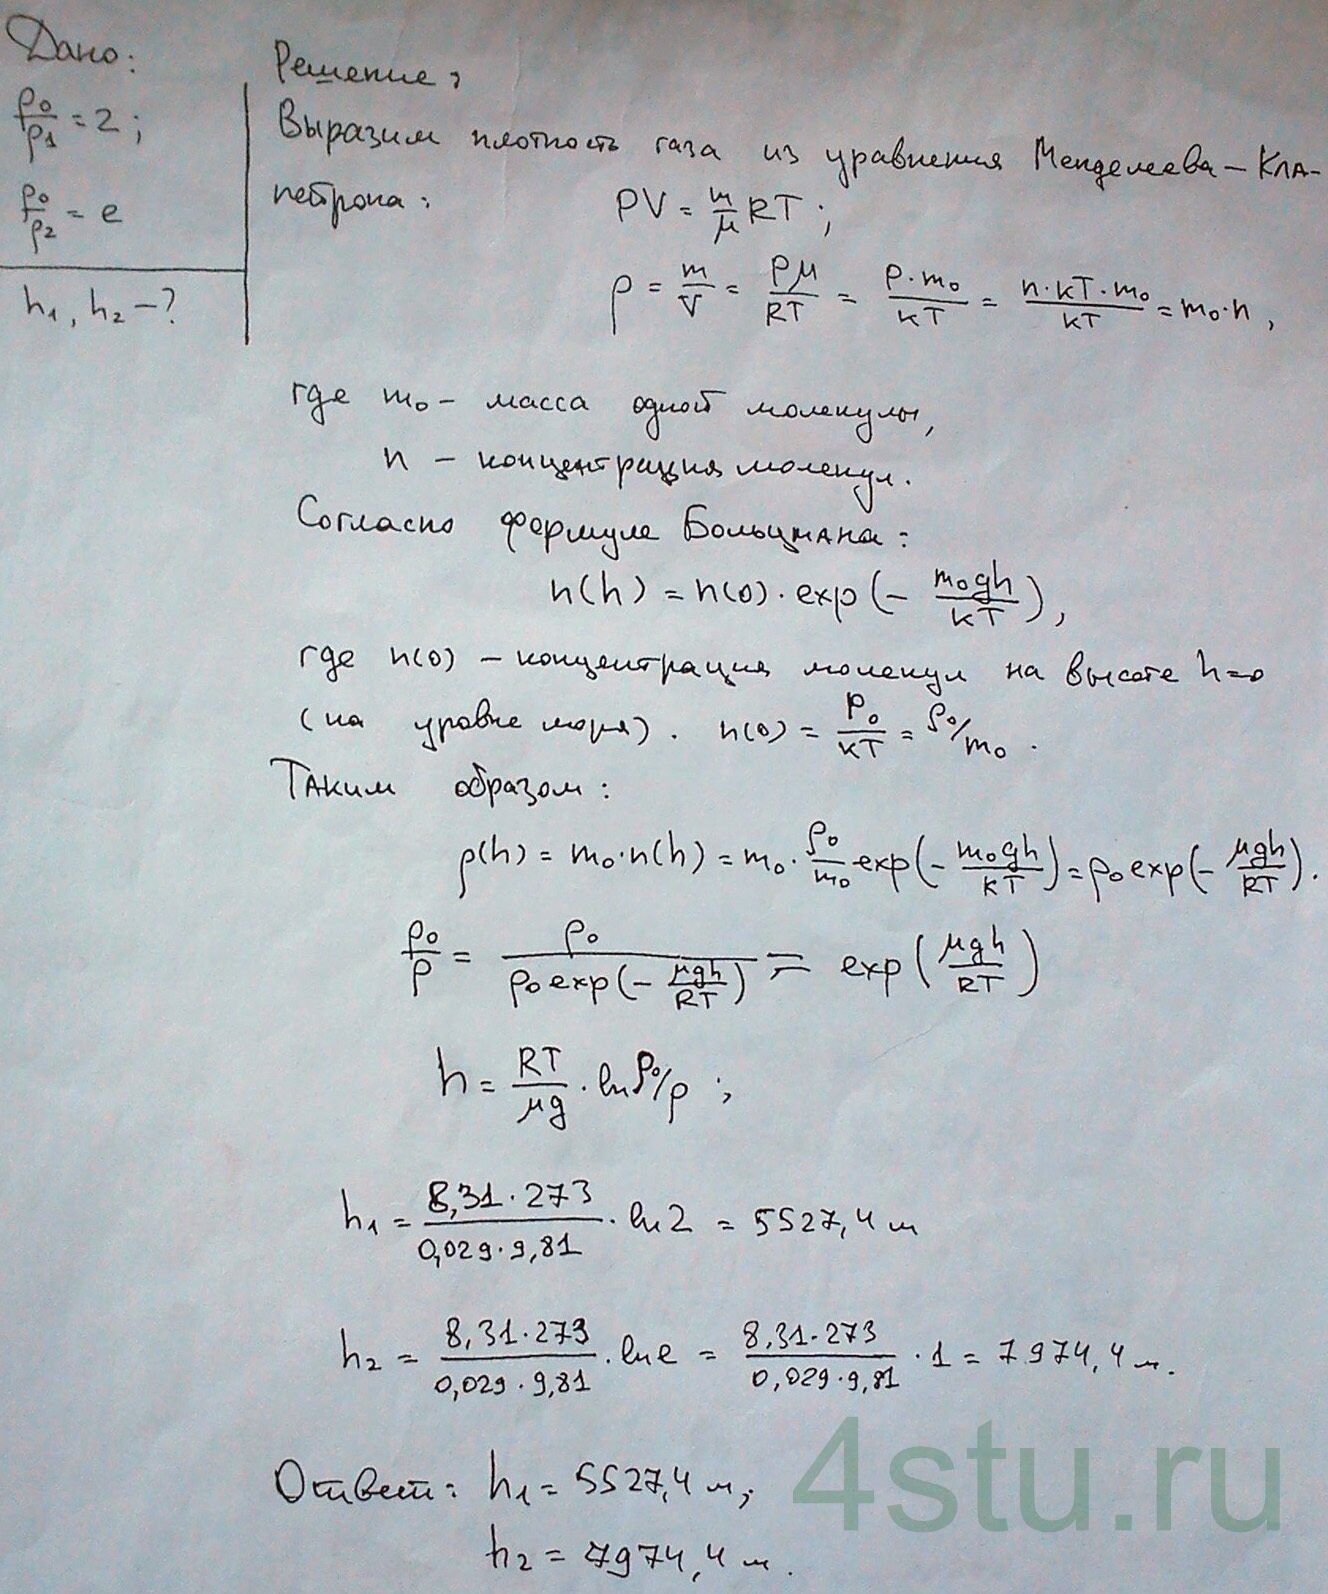 Дано:
ρ₀/ρ₁ = 2;
ρ₀/ρ₂ = e
h₁, h₂ – ?
Решение:
Выразим плотность газа из уравнения Менделеева – Кла-
пейрона:
PV = m/μ RT;
ρ = m/V = Pμ/RT = P·m₀/кT = n·кT·m₀/кT = m₀·n,
где m₀ – масса одной молекулы,
n – концентрация молекул.
Согласно формуле Больцмана:
n(h) = n(0)·exp(– m₀gh/кT),
где n(0) – концентрация молекул на высоте h=0
(на уровне моря). n(0) = P₀/кT = ρ₀/m₀.
Таким образом:
ρ(h) = m₀·n(h) = m₀·ρ₀/m₀ exp(– m₀gh/кT) = ρ₀exp(– μgh/RT).
ρ₀/ρ = ρ₀/ρ₀exp(– μgh/RT) = exp(μgh/RT)
h = RT/μg · ln ρ₀/ρ;
h₁ = 8,31·273/0,029·9,81 · ln2 = 5527,4 м
h₂ = 8,31·273/0,029·9,81 · lne = 8,31·273/0,029·9,81 · 1 = 7974,4 м.
Ответ: h₁ = 5527,4 м;
h₂ = 7974,4 м.
4stu.ru